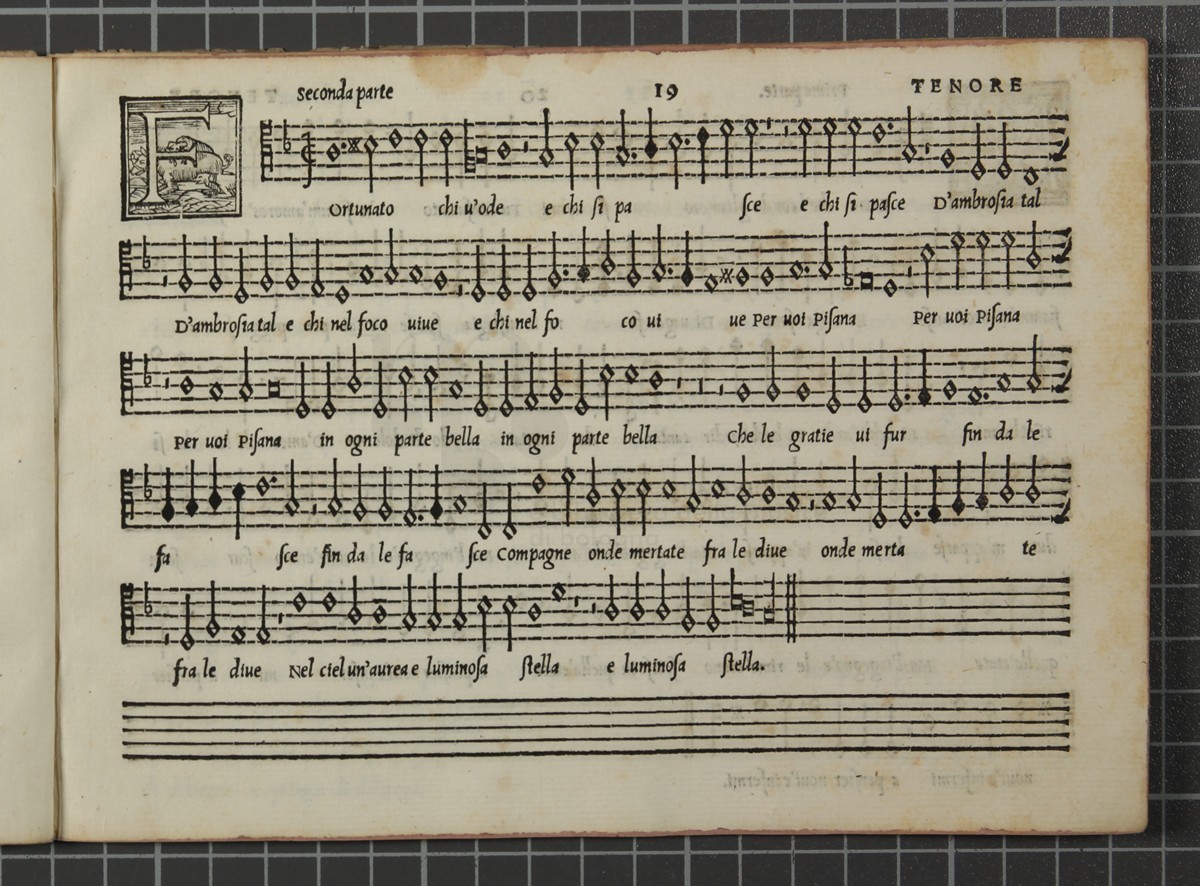 Seconda parte 19 TENORE
FOrtunato chi u'ode e chi ſi pa ſce e chi ſi paſce D'ambroſia tal
D'ambroſia tal e chi nel foco uiue e chi nel fo co ui ue Per uoi Piſana Per uoi Piſana
Per uoi Piſana in ogni parte bella in ogni parte bella Che le gratie ui fur fin da le
fa ſce fin da le fa ſce Compagne onde mertate fra le diue onde merta te
fra le diue Nel ciel un'aurea e luminoſa ſtella e luminoſa ſtella.